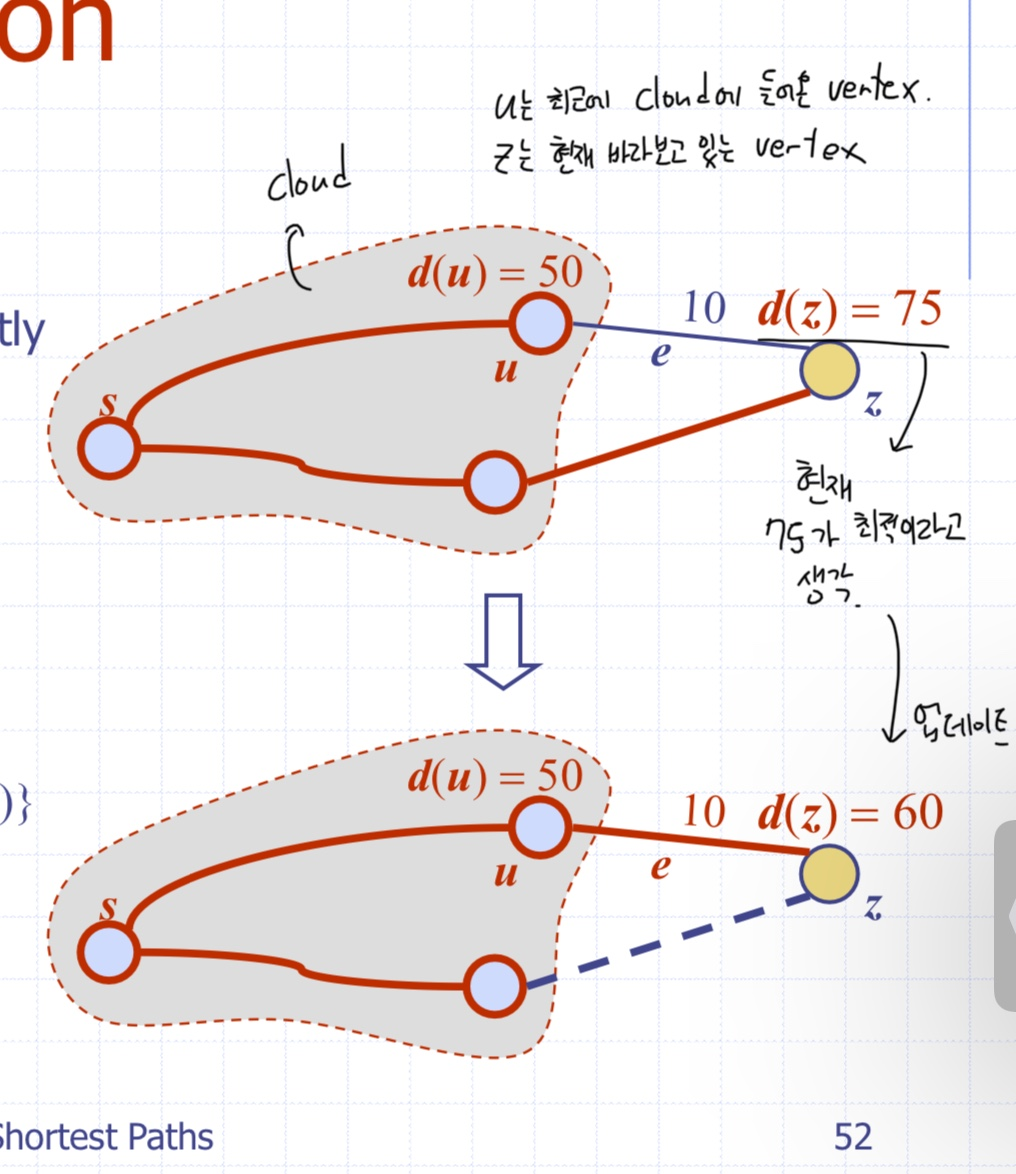 on
u는 최근에 cloud에 들어온 vertex.
z는 현재 바라보고 있는 vertex
cloud
d(u) = 50
10 d(z) = 75
tly
e
u
s
z
현재
75가 최적이라고
생각.
업데이트
d(u) = 50
)}
10 d(z) = 60
e
u
s
z
Shortest Paths
52